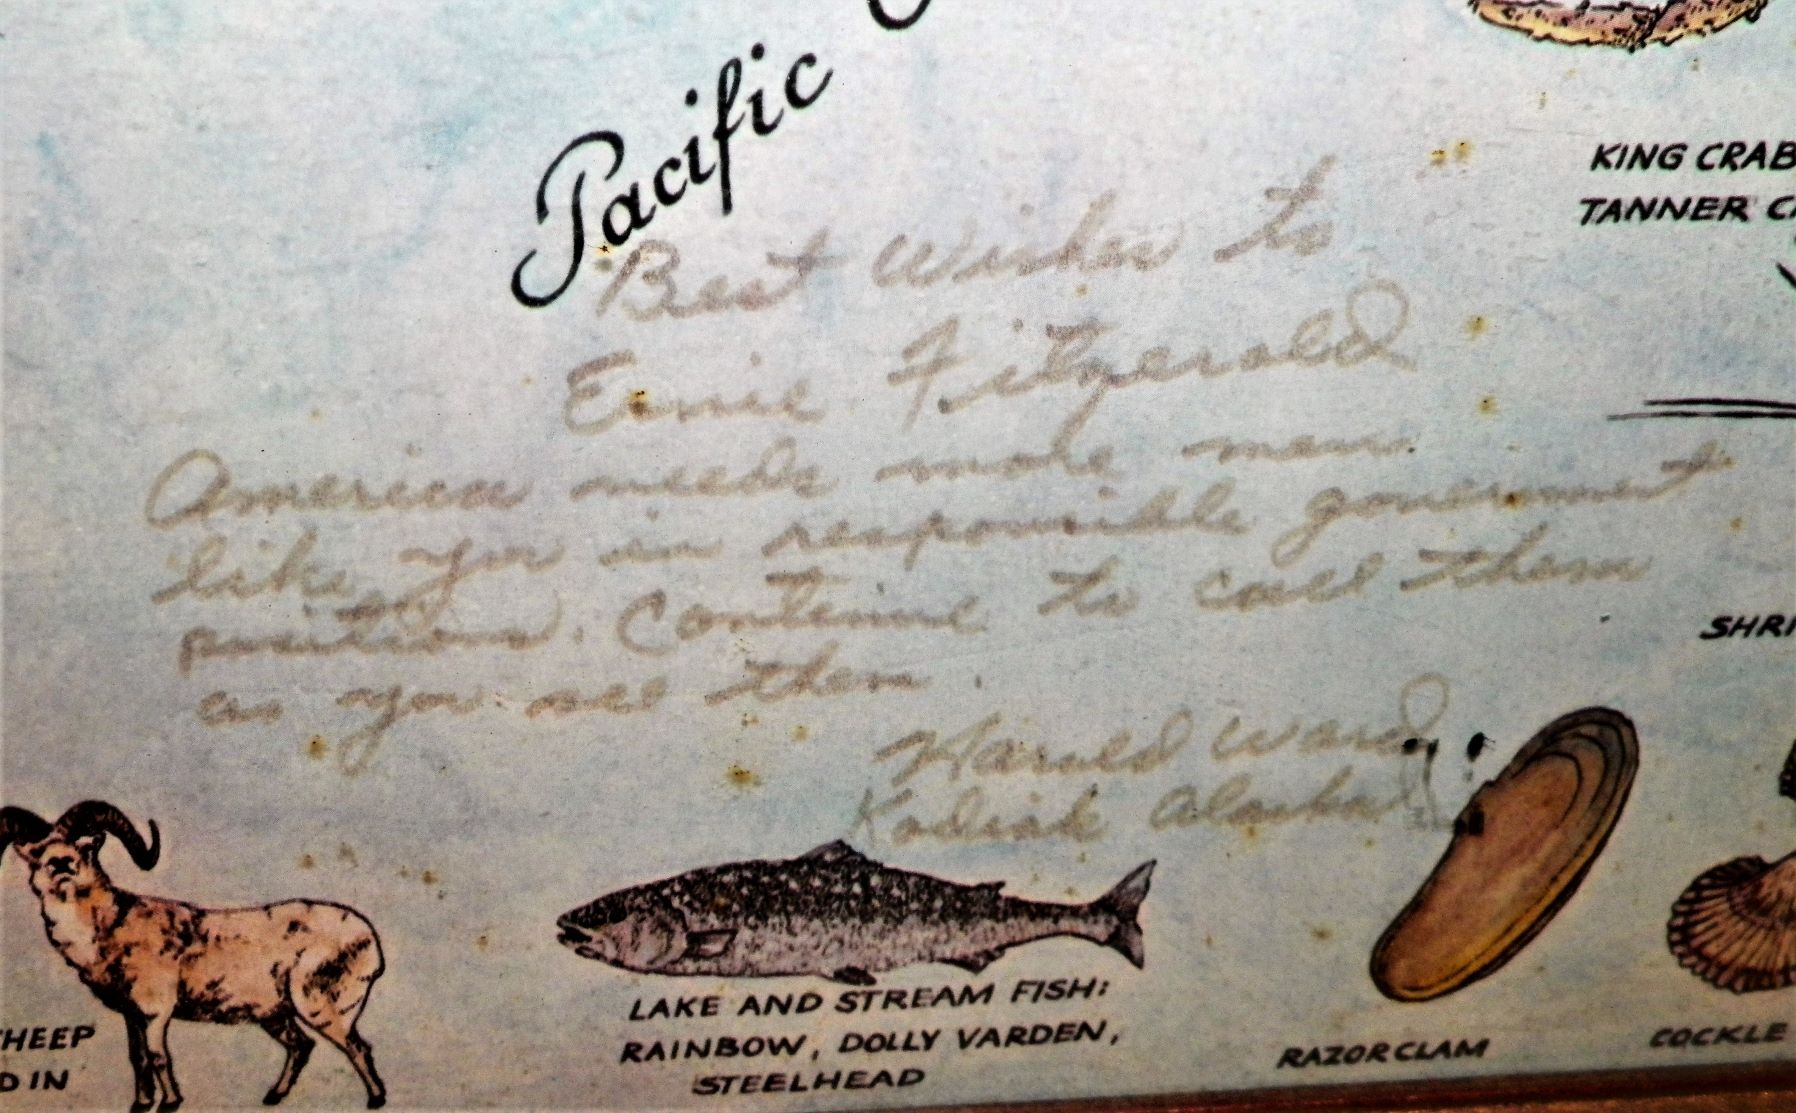 Pacific
KING CRAB
TANNER
Best Wishes to
Ernie Fitzgerald
America needs more men
like you in responsible government
positions. Continue to call them
as you see them.
Harold Ward
Kodiak Alaska
SHRI
HEEP
D IN
LAKE AND STREAM FISH:
RAINBOW, DOLLY VARDEN,
STEELHEAD
RAZOR CLAM
COCKLE